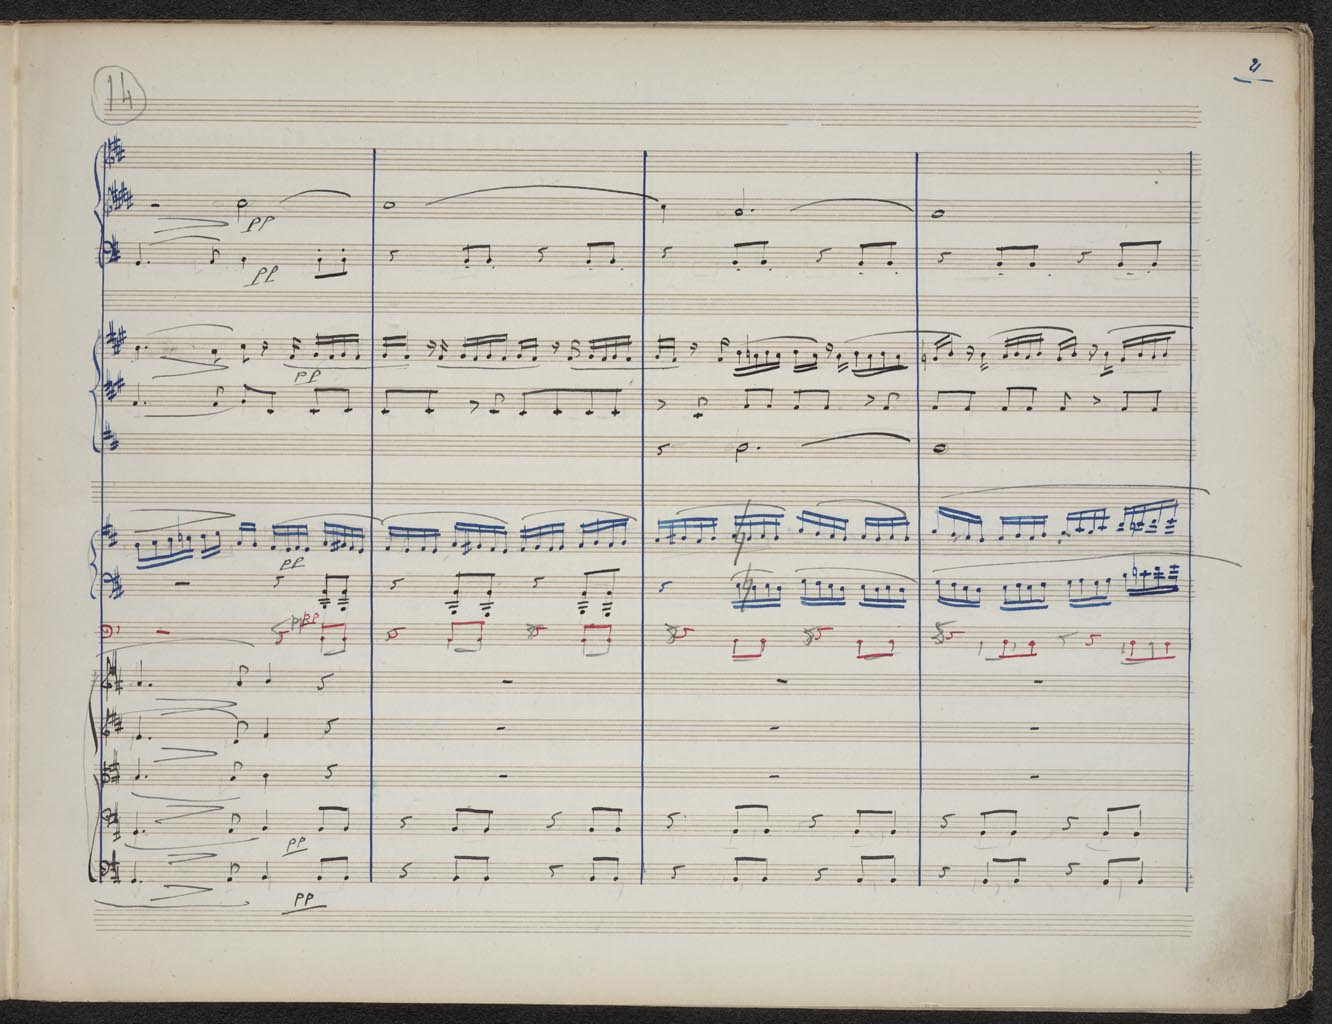 14
2
pp
pp
pp
pp
pp
pp
pp